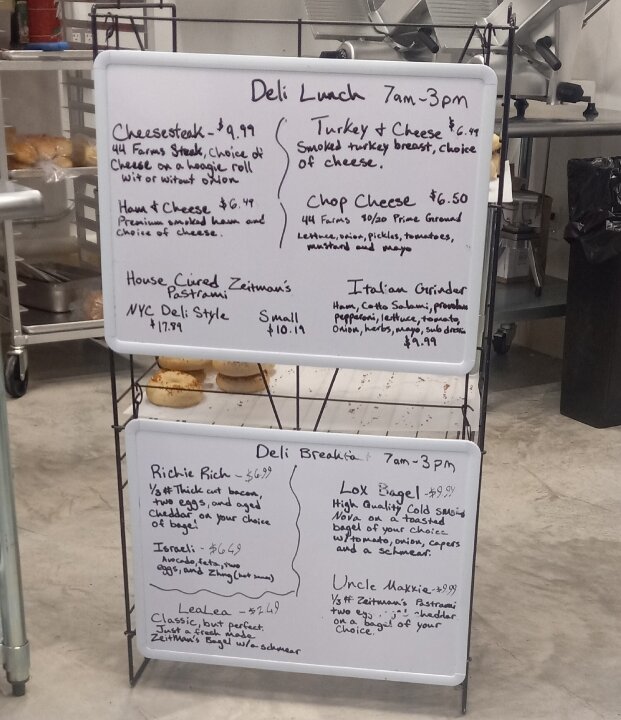 Deli Lunch 7am-3pm
Cheesesteak - $9.99
44 Farms Steak, choice of
Cheese on a hoagie roll
wit or witout onion
Turkey & Cheese $6.49
Smoked turkey breast, choice
of cheese.
Ham & Cheese $6.49
Premium smoked ham and
choice of cheese.
Chop Cheese $6.50
44 Farms 80/20 Prime Ground
Lettuce, onion, pickles, tomatoes,
mustard and mayo
House Cured Zeitman's
Pastrami
NYC Deli Style
$17.89
Small
$10.19
Italian Grinder
Ham, Cotto Salami, provolone
pepperoni, lettuce, tomato,
Onion, herbs, mayo, sub dressin
$9.99
Deli Breakfa t 7am-3pm
Richie Rich - $6.99
1/3 # Thick cut bacon,
two eggs, and aged
cheddar on your choice
of bagel
Israeli - $6.49
Avocado, feta, two
eggs, and Zhug (hot sauce)
LeaLea - $2.49
Classic, but perfect.
Just a fresh made
Zeitman's Bagel w/a schmear
Lox Bagel - $9.99
High Quality Cold smoked
Nova on a toasted
bagel of your choice
w/tomato, onion, capers
and a schmear.
Uncle Makkie - $9.99
1/3 # Zeitman's Pastrami
two eg cheddar
on a bagel of your
Choice.